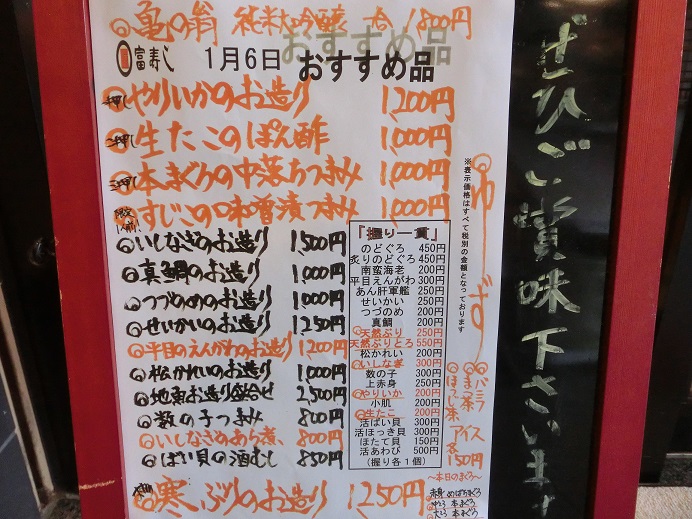 亀の翁 純米大吟醸 一合 1,800円
富寿し 1月6日 おすすめ品
おすすめ品
やりいかのお造り 1,200円
生たこのぽん酢 1,000円
本まぐろの中落ちつまみ 1,000円
すじこの味噌漬つまみ 1,000円
いしなぎのお造り 1,500円
真鯛のお造り 1,000円
つづめのお造り 1,000円
せいかいのお造り 1,250円
平目のえんがわのお造り 1,200円
松かれいのお造り 1,000円
地魚お造り盛合せ 2,500円
数の子つまみ 800円
いしなぎのあら煮 800円
ばい貝の酒むし 850円
寒ぶりのお造り 1,250円
「握り一貫」
のどぐろ 450円
炙りのどぐろ 450円
南蛮海老 200円
平目えんがわ 300円
あん肝軍艦 250円
せいかい 250円
つづのめ 200円
真鯛 200円
天然ぶり 250円
天然ぶりとろ 550円
松かれい 200円
いしなぎ 300円
数の子 300円
上赤身 250円
やりいか 200円
小肌 200円
生たこ 200円
活ばい貝 300円
活ほっき貝 300円
ほたて貝 150円
活あわび 500円
(握り各1個)
※表示価格はすべて税別の金額となっております
ゆず
バニラ
まっ茶
ほうじ茶
アイス
各150円
~本日のまぐろ~
赤身 めばちまぐろ
中とろ 本まぐろ
大とろ 本まぐろ
ぜひご賞味下さいませ